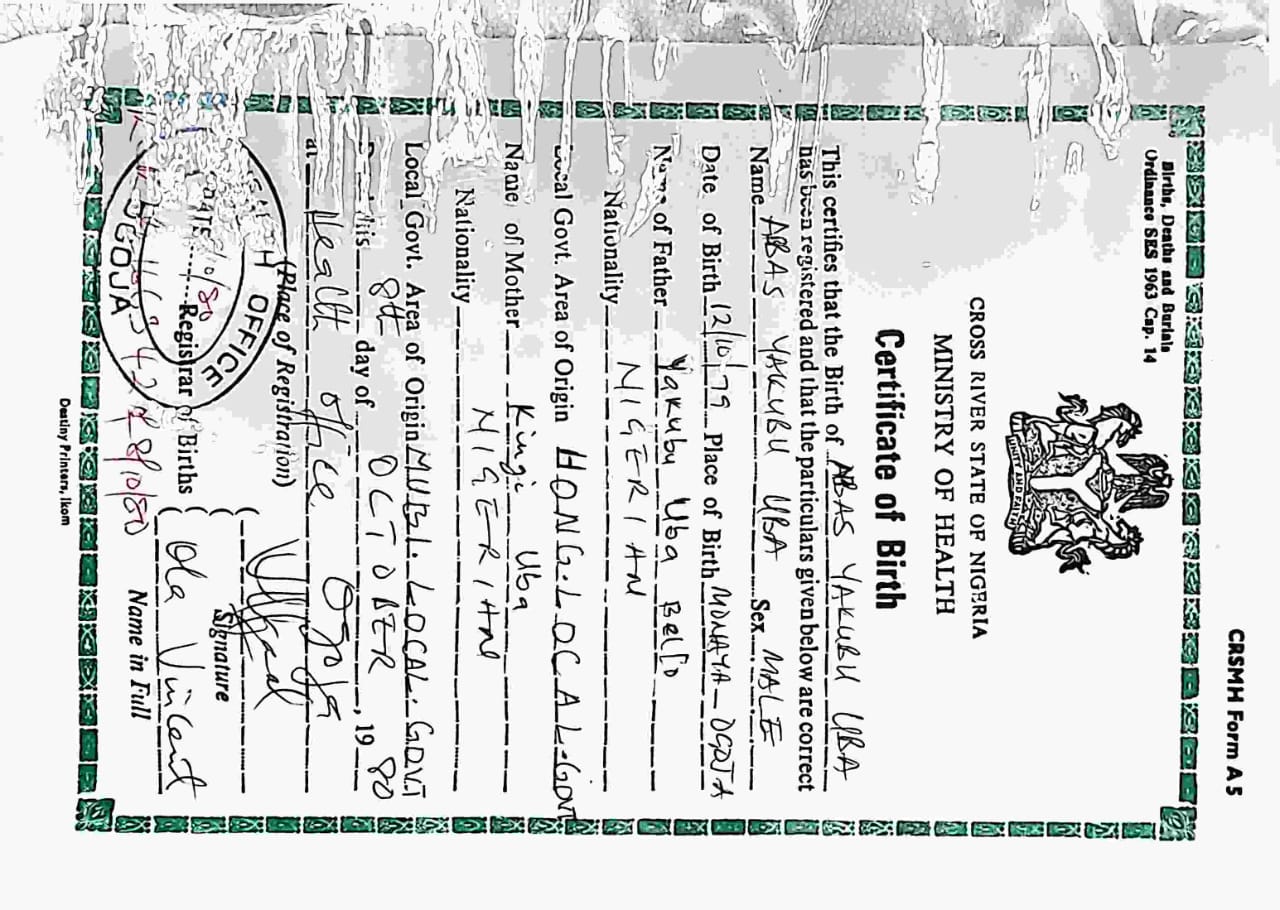 CRSMH Form A5
Births, Deaths and Burials
Ordinance SES 1963 Cap. 14
UNITY AND FAITH
CROSS RIVER STATE OF NIGERIA
MINISTRY OF HEALTH
Certificate of Birth
This certifies that the Birth of ABAS YAKUBU UBA
has been registered and that the particulars given below are correct
Name ABAS YAKUBU UBA Sex MALE
Date of Birth 12/10/79 Place of Birth MONAYA-OGOJA
Name of Father Yakubu Uba Bello
Nationality NIGERIAN
Local Govt. Area of Origin HONG. LOCAL-GOVT
Name of Mother Kingi Uba
Nationality NIGERIAN
Local Govt. Area of Origin MUBI. LOCAL. GOVT
this 8th day of OCTOBER, 1980
at Health Office Ogoja
(Place of Registration)
Signature
Registrar of Births
Ola Vincent
Name in Full
HEALTH OFFICE
DATE /10/80
OGOJA
8/10/80
Destiny Printers, Ikom